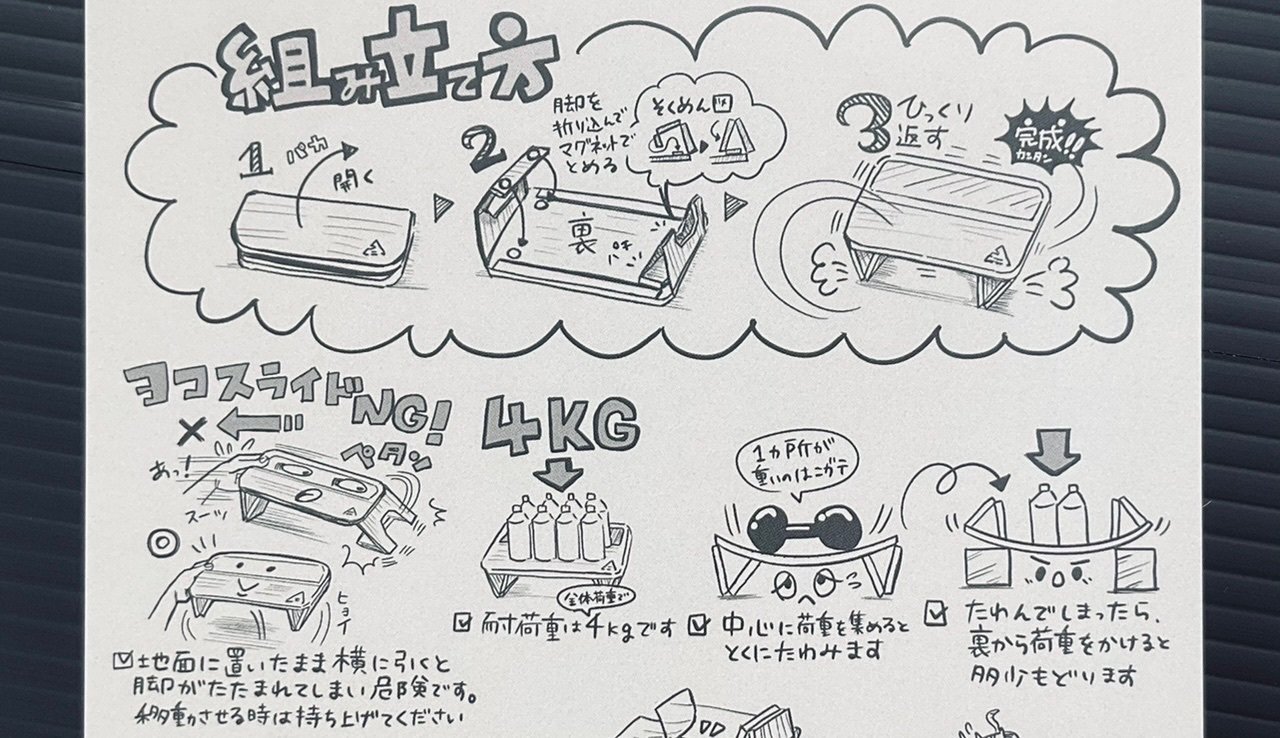 組み立て方
1 パカ
開く
2
脚を
折り込んで
マグネットで
とめる
そくめん図
裏
3 ひっくり
返す
完成!!
カンタン
ヨコスライドNG!
ペタン
あっ!
スーッ
ヒョイ
☑地面に置いたまま横に引くと
脚がたたまれてしまい危険です。
移動させる時は持ち上げてください
4KG
全体荷重で
☑耐荷重は4kgです
1カ所が
重いのはニガテ
☑中心に荷重を集めると
とくにたわみます
☑たわんでしまったら、
裏から荷重をかけると
多少もどります